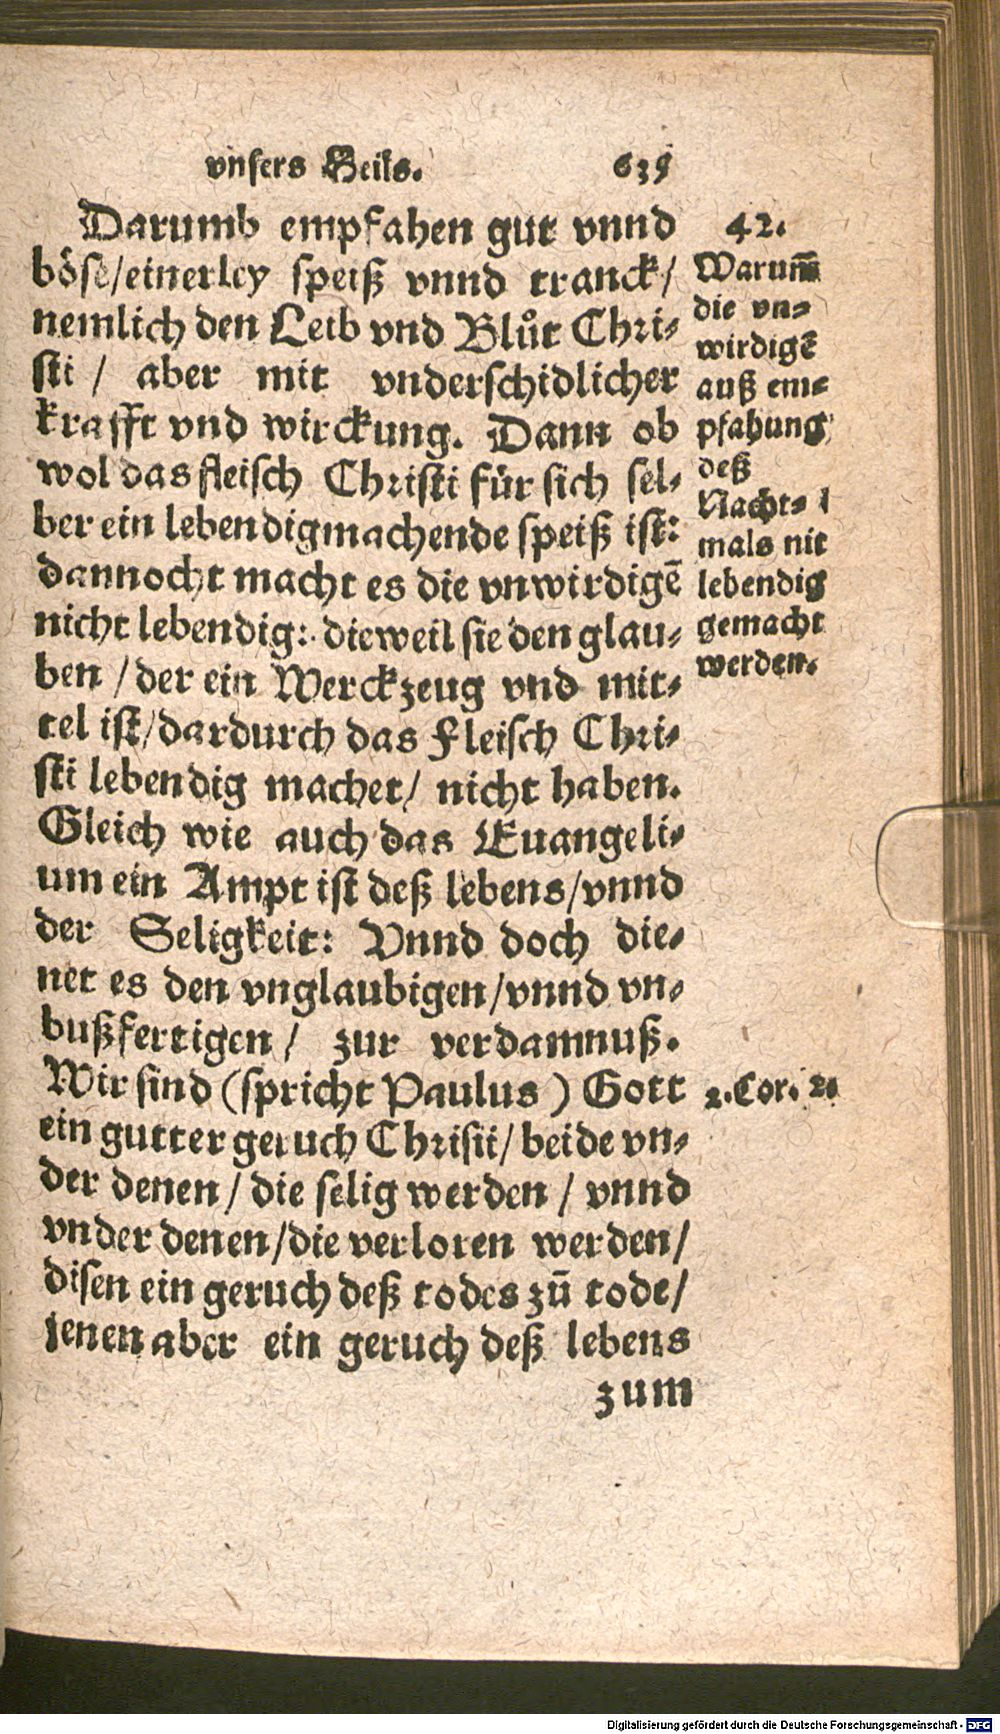 vnsers Heils. 639
Darumb empfahen gut vnnd
böse/einerley speiß vnnd tranck/
nemlich den Leib vnd Blůt Chri-
sti / aber mit vnderschidlicher
krafft vnd wirckung. Dann ob
wol das fleisch Christi für sich sel-
ber ein lebendigmachende speiß ist:
dannocht macht es die vnwirdigē
nicht lebendig: dieweil sie den glau-
ben / der ein Werckzeug vnd mit-
tel ist/dardurch das Fleisch Chri-
sti lebendig machet/ nicht haben.
Gleich wie auch das Euangeli-
um ein Ampt ist deß lebens/vnnd
der Seligkeit: Vnnd doch die-
net es den vnglaubigen/vnnd vn-
bußfertigen / zur verdamnuß.
Wir sind (spricht Paulus) Gott
ein gutter geruch Christi/ beide vn-
der denen / die selig werden / vnnd
vnder denen/die verloren werden/
disen ein geruch deß todes zū tode/
jenen aber ein geruch deß lebens
zum
42.
Warum̄
die vn-
wirdigē
auß em-
pfahung
deß
Nacht-
mals nit
lebendig
gemacht
werden.
2.Cor. 2.
Digitalisierung gefördert durch die Deutsche Forschungsgemeinschaft - DFG